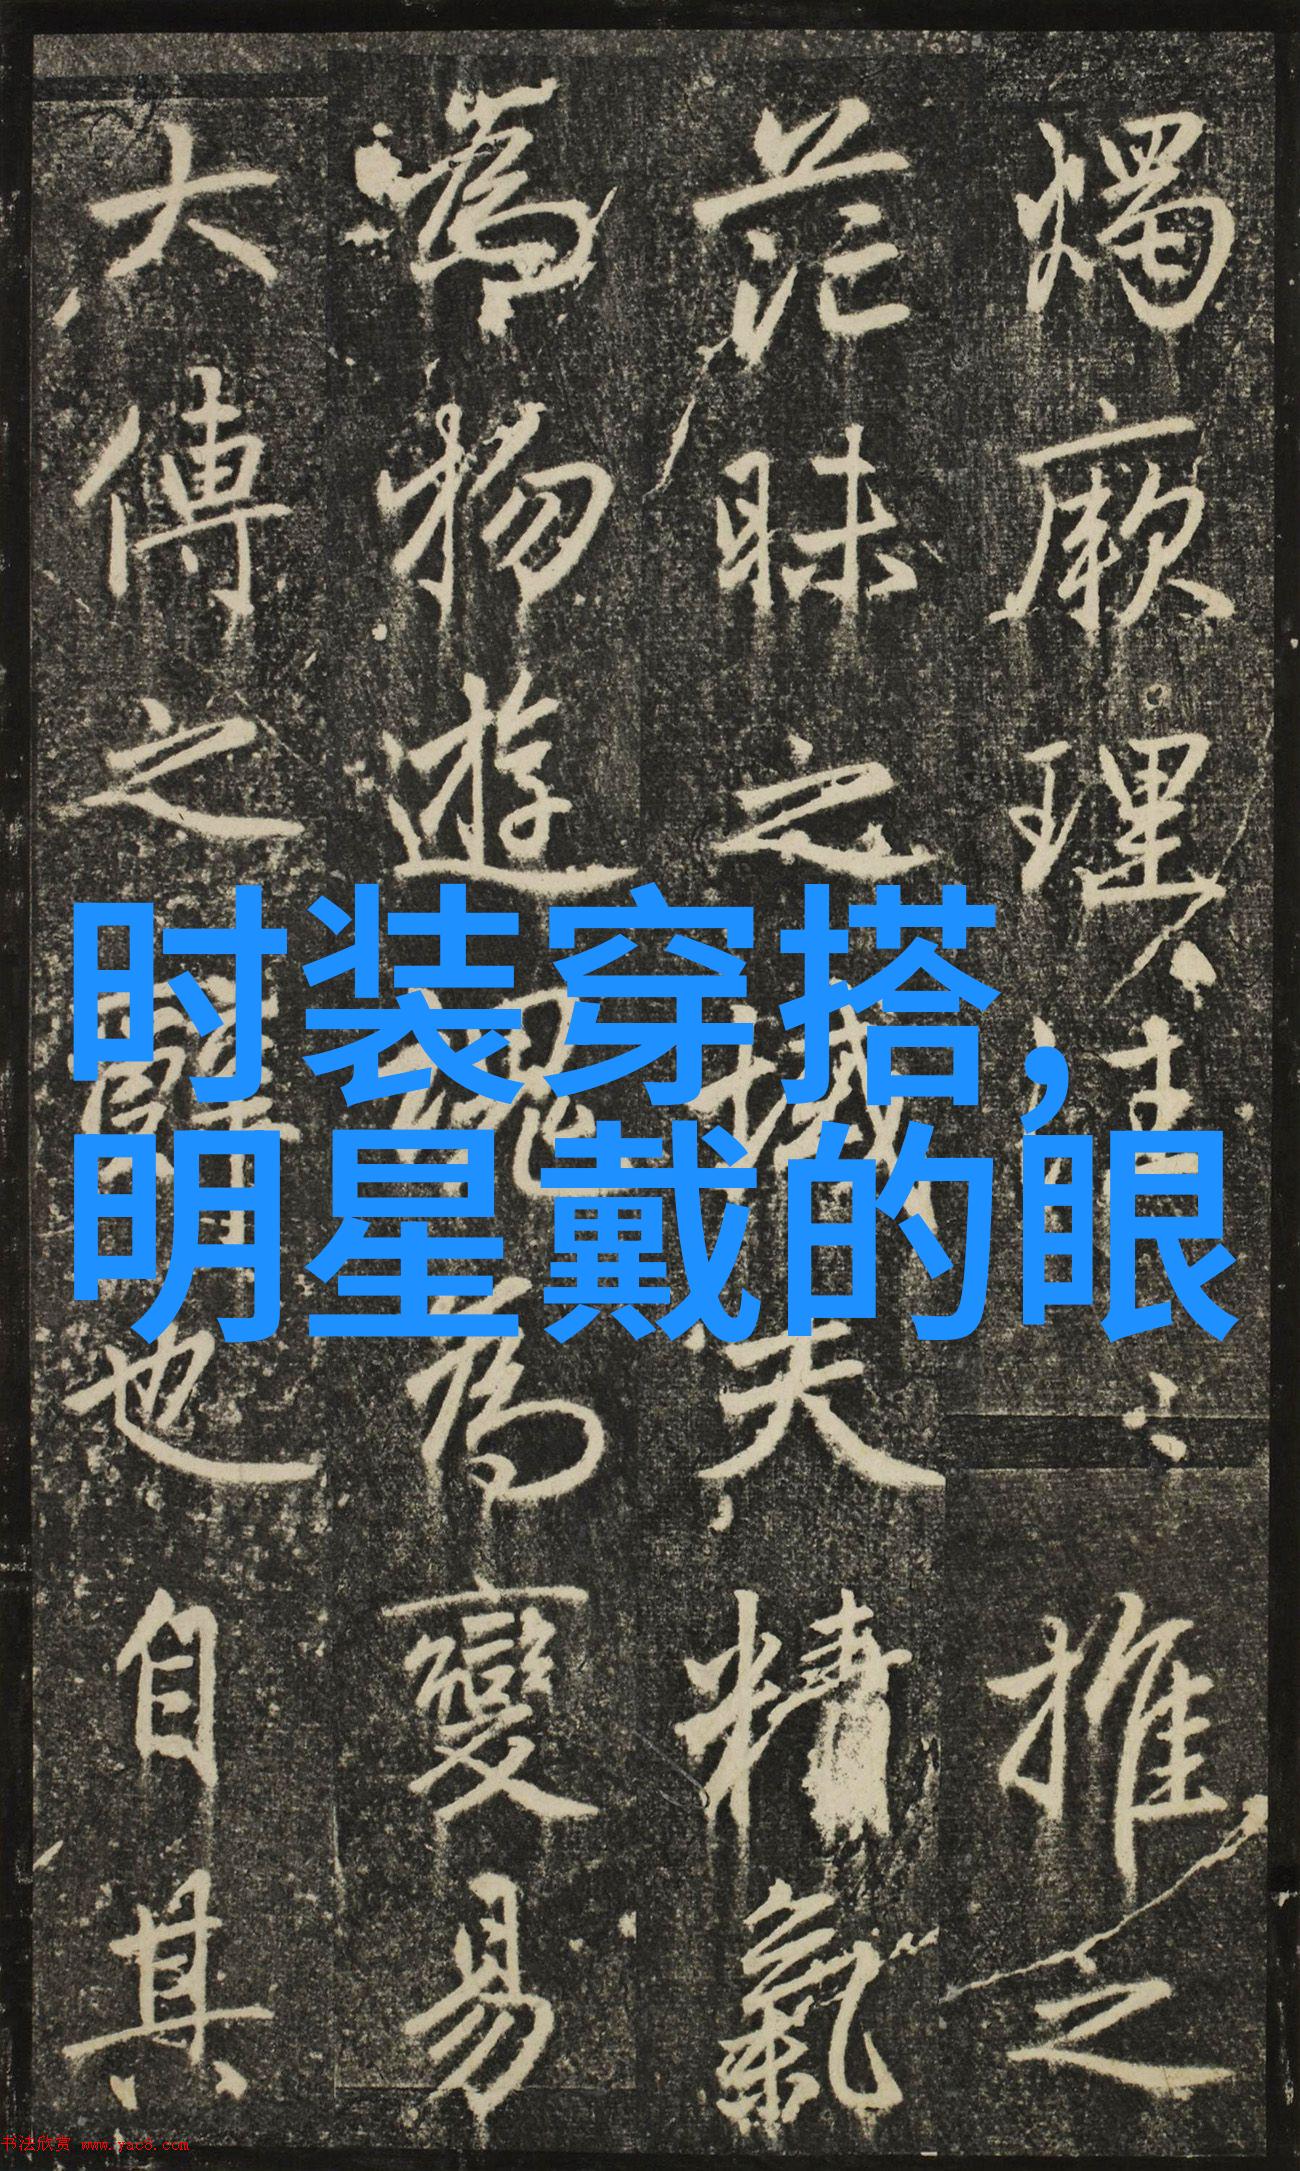 燭厥理推之
茫昧之域夫精氣
為物遊魂為變易
大傳之辭也自其
时装穿搭，
明星戴的眼
书法欣赏 www.yac8.com